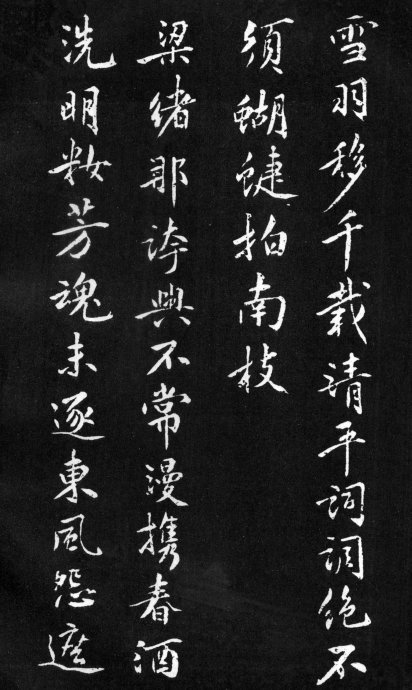 雪羽移千載清平詞調絶不
須蝴蝶拍南枝
梁緒那誇興不常漫携春酒
洗明妝芳魂未逐東風怨遮